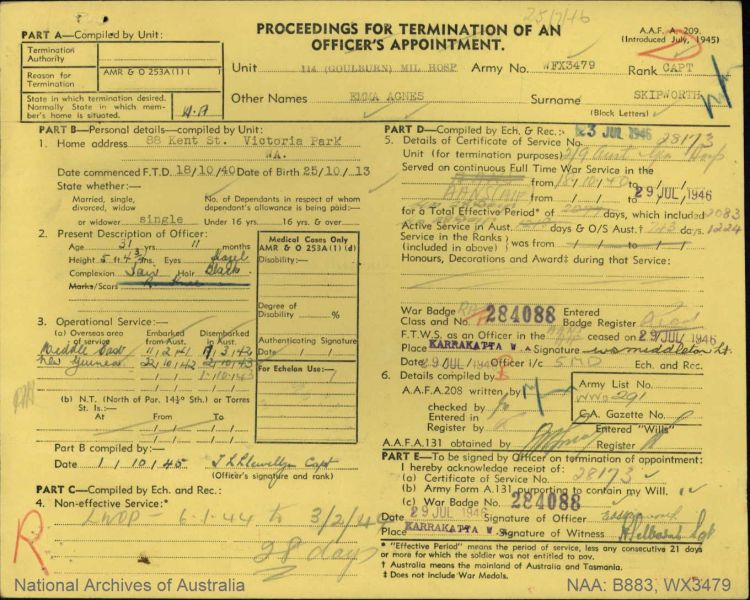 25/7/46
PART A—Compiled by Unit:
Termination Authority
Reason for Termination
AMR & O 253A(1) ( )
State in which termination desired. Normally State in which member's home is situated.
W.A
PROCEEDINGS FOR TERMINATION OF AN
OFFICER'S APPOINTMENT.
A.A.F. A. 209.
(Introduced July, 1945)
Unit 114 (GOULBURN) MIL HOSP Army No. WFX3479 Rank CAPT
Other Names EMMA AGNES Surname SKIPWORTH
(Block Letters)
PART B—Personal details—compiled by Unit:
1. Home address 88 Kent St. Victoria Park
WA.
Date commenced F.T.D. 18/10/40 Date of Birth 25/10/13
State whether:—
Married, single, divorced, widow or widower single
No. of Dependants in respect of whom dependant's allowance is being paid:—
Under 16 yrs. 16 yrs. & over
2. Present Description of Officer:
Age 31 yrs. 11 months
Height 5 ft 4¾ ins. Eyes Hazel
Complexion Fair Hair Black
Marks/Scars
Medical Cases Only
AMR & O 253A(1) (d)
Disability:—
Degree of
Disability %
Authenticating Signature
Date / /
For Echelon Use:—
3. Operational Service:—
(a) Overseas area of service
Embarked from Aust.
Disembarked in Aust.
Middle East
New Guinea
(b) N.T. (North of Par. 14½° Sth.) or Torres St. Is.:—
At From To
Part B compiled by:—
Date 1/10/45 Capt
(Officer's signature and rank)
PART C—Compiled by Ech. and Rec.:
4. Non-effective Service:*
LWOP - 6-1-44 to 3/2/44
28 days
R
PART D—Compiled by Ech. & Rec.:
23 JUL 1946
5. Details of Certificate of Service No. 28173
Unit (for termination purposes) 2/9 Aust Gen Hosp
Served on continuous Full Time War Service in the
from 18/10/40 to 29 JUL 1946
for a Total Effective Period* of days, which included 2083
Active Service in Aust.† days & O/S Aust.† 743 days. 1224
Service in the Ranks
(included above) was from / / to / /
Honours, Decorations and Award‡ during that Service:
War Badge
Class and No. 284088 Entered Badge Register
F.T.W.S. as an Officer in the ceased on 29 JUL 1946
Place KARRAKATTA W.A. Signature W S Middleton Lt.
Date 29 JUL 1946 Officer i/c 5 MD Ech. and Rec.
6. Details compiled by
A.A.F.A.208 written by
checked by
Entered in
Register by
A.A.F.A.131 obtained by
Army List No.
WWO 291
C.A. Gazette No.
Entered "Wills"
Register
PART E—To be signed by Officer on termination of appointment:
I hereby acknowledge receipt of:
(a) Certificate of Service No. 28173
(b) Army Form A.131 purporting to contain my Will.
(c) War Badge No. 284088
Date 29 JUL 1946 Signature of Officer
Place KARRAKATTA W.A. Signature of Witness Sgt
* "Effective Period" means the period of service, less any consecutive 21 days
or more for which the soldier was not entitled to pay.
† Australia means the mainland of Australia and Tasmania.
‡ Does not include War Medals.
National Archives of Australia
NAA: B883, WX3479